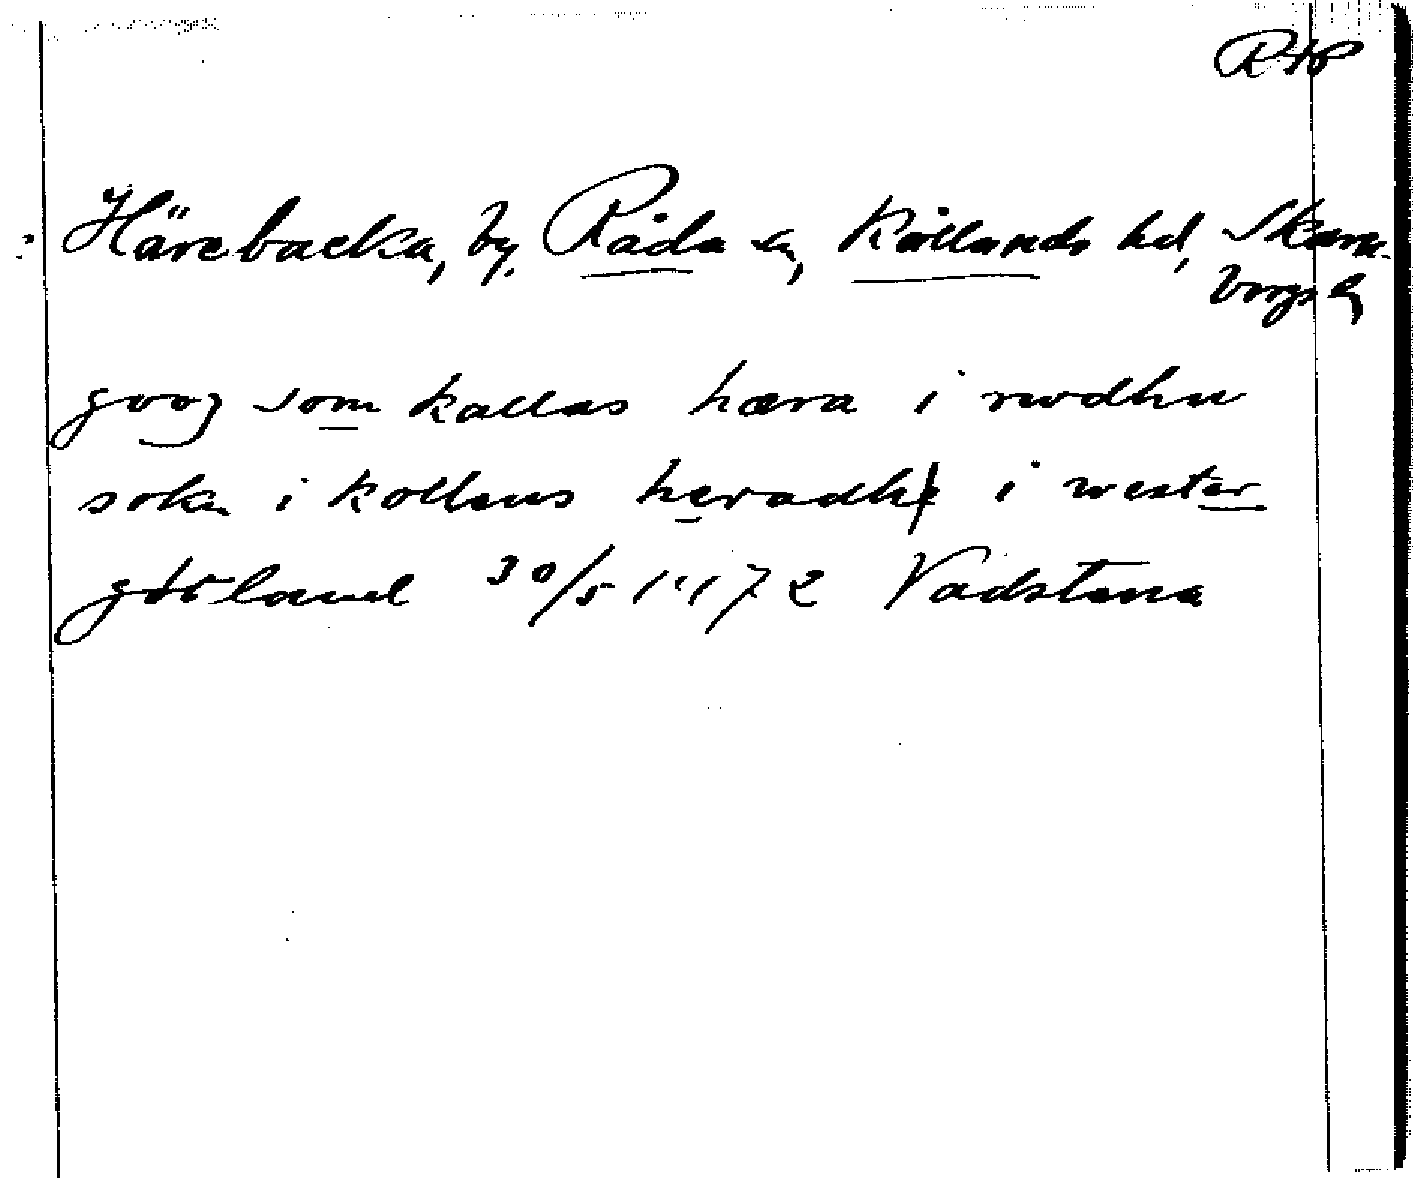 RAP
? Härebacka, by, Råda sn, Kållands hd, Skara-
borgs l.
gooz som kallas hæra i rwdhu
sokn i kollens heradhe i wester
götland 30/5 1472 Vadstena